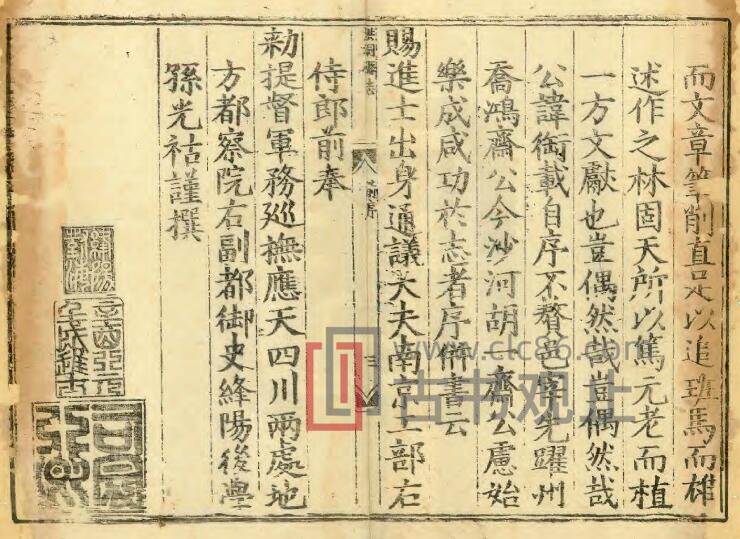 而文章筆削直足以追班馬而雄
述作之林固天所以篤元老而植
一方文獻也豈偶然哉豈偶然哉
公諱銜載自序不贅邑宰先躍州
喬鴻齋公今沙河胡 齋公慮始
樂成咸功於志者序併書云
賜進士出身通議大夫南京工部右
侍郎前奉
勑提督軍務巡撫應天四川兩處地
方都察院右副都御史絳陽後學
孫光祜謹撰
前序
三
www.clc86.com
古书观止